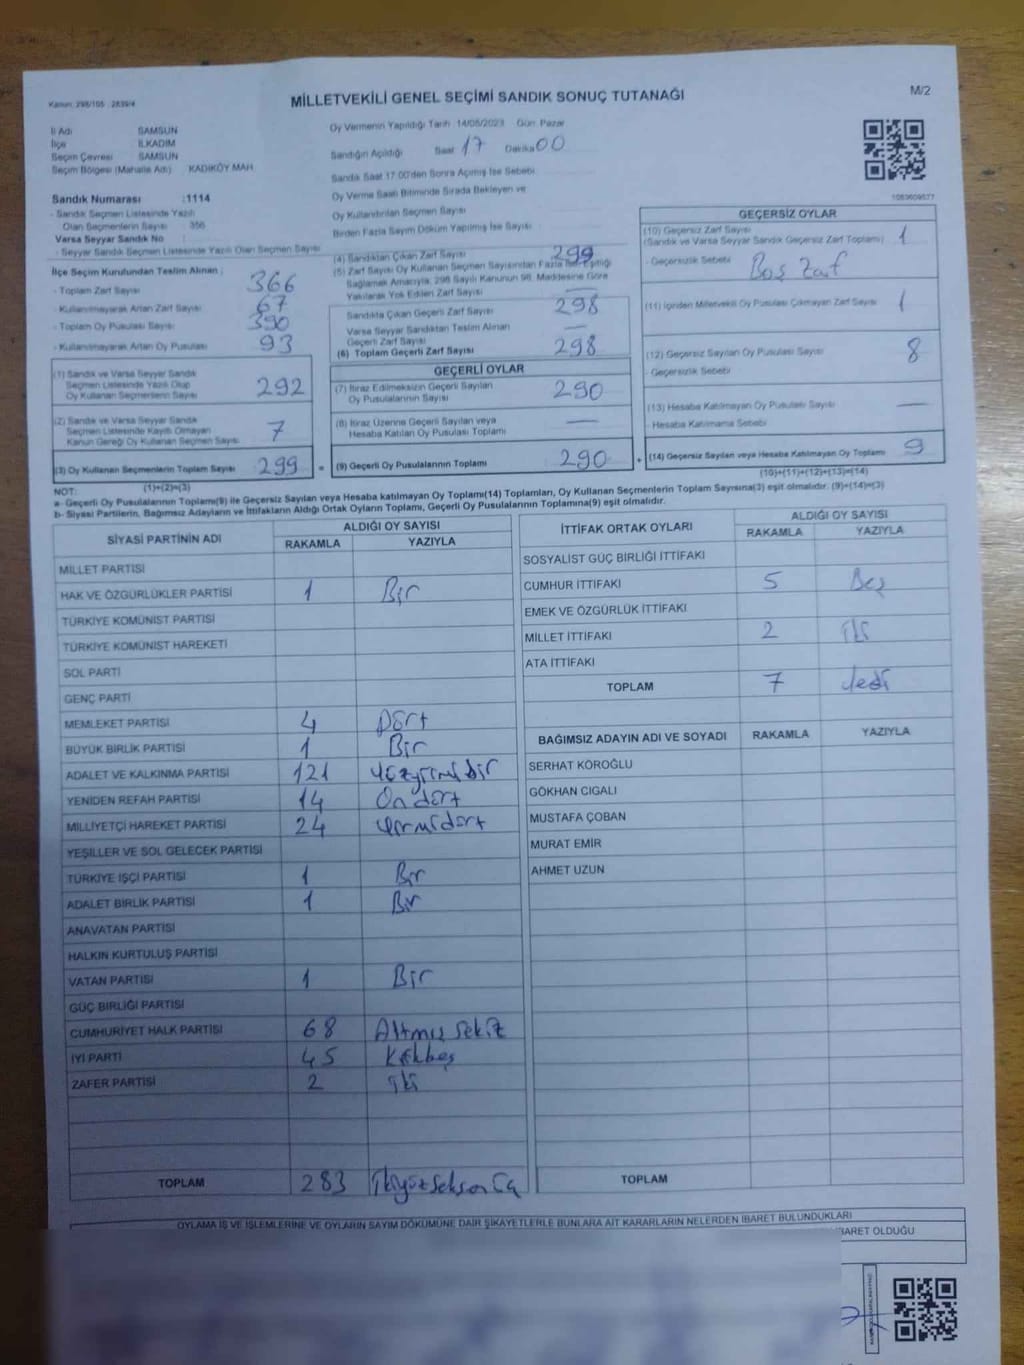 Kanun: 298/105 - 2839/4
MİLLETVEKİLİ GENEL SEÇİMİ SANDIK SONUÇ TUTANAĞI
M/2
İl Adı SAMSUN
İlçe İLKADIM
Seçim Çevresi SAMSUN
Seçim Bölgesi (Mahalle Adı) KADIKÖY MAH
Sandık Numarası :1114
- Sandık Seçmen Listesinde Yazılı
Olan Seçmenlerin Sayısı : 356
Varsa Seyyar Sandık No :
- Seyyar Sandık Seçmen Listesinde Yazılı Olan Seçmen Sayısı
Oy Vermenin Yapıldığı Tarih :14/05/2023 Gün: Pazar
Sandığın Açıldığı Saat 17 Dakika 00
Sandık Saat 17.00'den Sonra Açılmış İse Sebebi
Oy Verme Saati Bitiminde Sırada Bekleyen ve
Oy Kullandırılan Seçmen Sayısı
Birden Fazla Sayım Döküm Yapılmış İse Sayısı
1083609577
İlçe Seçim Kurulundan Teslim Alınan ;
- Toplam Zarf Sayısı 366
- Kullanılmayarak Artan Zarf Sayısı 67
- Toplam Oy Pusulası Sayısı 390
- Kullanılmayarak Artan Oy Pusulası 93
(1) Sandık ve Varsa Seyyar Sandık
Seçmen Listesinde Yazılı Olup
Oy Kullanan Seçmenlerin Sayısı 292
(2) Sandık ve Varsa Seyyar Sandık
Seçmen Listesinde Kayıtlı Olmayan
Kanun Gereği Oy Kullanan Seçmen Sayısı 7
(3) Oy Kullanan Seçmenlerin Toplam Sayısı 299
(1)+(2)=(3)
(4) Sandıktan Çıkan Zarf Sayısı 299
(5) Zarf Sayısı Oy Kullanan Seçmen Sayısından Fazla İse, Eşitliği
Sağlamak Amacıyla, 298 Sayılı Kanunun 98. Maddesine Göre
Yakılarak Yok Edilen Zarf Sayısı —
Sandıkta Çıkan Geçerli Zarf Sayısı 298
Varsa Seyyar Sandıktan Teslim Alınan
Geçerli Zarf Sayısı —
(6) Toplam Geçerli Zarf Sayısı 298
GEÇERLİ OYLAR
(7) İtiraz Edilmeksizin Geçerli Sayılan
Oy Pusulalarının Sayısı 290
(8) İtiraz Üzerine Geçerli Sayılan veya
Hesaba Katılan Oy Pusulası Toplamı —
= (9) Geçerli Oy Pusulalarının Toplamı 290 +
GEÇERSİZ OYLAR
(10) Geçersiz Zarf Sayısı
(Sandık ve Varsa Seyyar Sandık Geçersiz Zarf Toplamı) 1
- Geçersizlik Sebebi Boş Zarf
(11) İçinden Milletvekili Oy Pusulası Çıkmayan Zarf Sayısı 1
(12) Geçersiz Sayılan Oy Pusulası Sayısı 8
- Geçersizlik Sebebi
(13) Hesaba Katılmayan Oy Pusulası Sayısı —
- Hesaba Katılmama Sebebi
(14) Geçersiz Sayılan veya Hesaba Katılmayan Oy Toplamı 9
(10)+(11)+(12)+(13)=(14)
NOT:
a- Geçerli Oy Pusulalarının Toplamı(9) ile Geçersiz Sayılan veya Hesaba katılmayan Oy Toplamı(14) Toplamları, Oy Kullanan Seçmenlerin Toplam Sayısına(3) eşit olmalıdır. (9)+(14)=(3)
b- Siyasi Partilerin, Bağımsız Adayların ve İttifakların Aldığı Ortak Oyların Toplamı, Geçerli Oy Pusulalarının Toplamına(9) eşit olmalıdır.
SİYASİ PARTİNİN ADI ALDIĞI OY SAYISI
RAKAMLA YAZIYLA
MİLLET PARTİSİ
HAK VE ÖZGÜRLÜKLER PARTİSİ 1 Bir
TÜRKİYE KOMÜNİST PARTİSİ
TÜRKİYE KOMÜNİST HAREKETİ
SOL PARTİ
GENÇ PARTİ
MEMLEKET PARTİSİ 4 Dört
BÜYÜK BİRLİK PARTİSİ 1 Bir
ADALET VE KALKINMA PARTİSİ 121 Yüzyirmibir
YENİDEN REFAH PARTİSİ 14 Ondört
MİLLİYETÇİ HAREKET PARTİSİ 24 Yirmidört
YEŞİLLER VE SOL GELECEK PARTİSİ
TÜRKİYE İŞÇİ PARTİSİ 1 Bir
ADALET BİRLİK PARTİSİ 1 Bir
ANAVATAN PARTİSİ
HALKIN KURTULUŞ PARTİSİ
VATAN PARTİSİ 1 Bir
GÜÇ BİRLİĞİ PARTİSİ
CUMHURİYET HALK PARTİSİ 68 Altmış sekiz
İYİ PARTİ 45 Kırkbeş
ZAFER PARTİSİ 2 iki
TOPLAM 283 ikiyüzseksenüç
İTTİFAK ORTAK OYLARI ALDIĞI OY SAYISI
RAKAMLA YAZIYLA
SOSYALİST GÜÇ BİRLİĞİ İTTİFAKI
CUMHUR İTTİFAKI 5 Beş
EMEK VE ÖZGÜRLÜK İTTİFAKI
MİLLET İTTİFAKI 2 iki
ATA İTTİFAKI
TOPLAM 7 Yedi
BAĞIMSIZ ADAYIN ADI VE SOYADI RAKAMLA YAZIYLA
SERHAT KÖROĞLU
GÖKHAN CIGALI
MUSTAFA ÇOBAN
MURAT EMİR
AHMET UZUN
TOPLAM
OYLAMA İŞ VE İŞLEMLERİNE VE OYLARIN SAYIM DÖKÜMÜNE DAİR ŞİKAYETLERLE BUNLARA AİT KARARLARIN NELERDEN İBARET BULUNDUKLARI
İBARET OLDUĞU